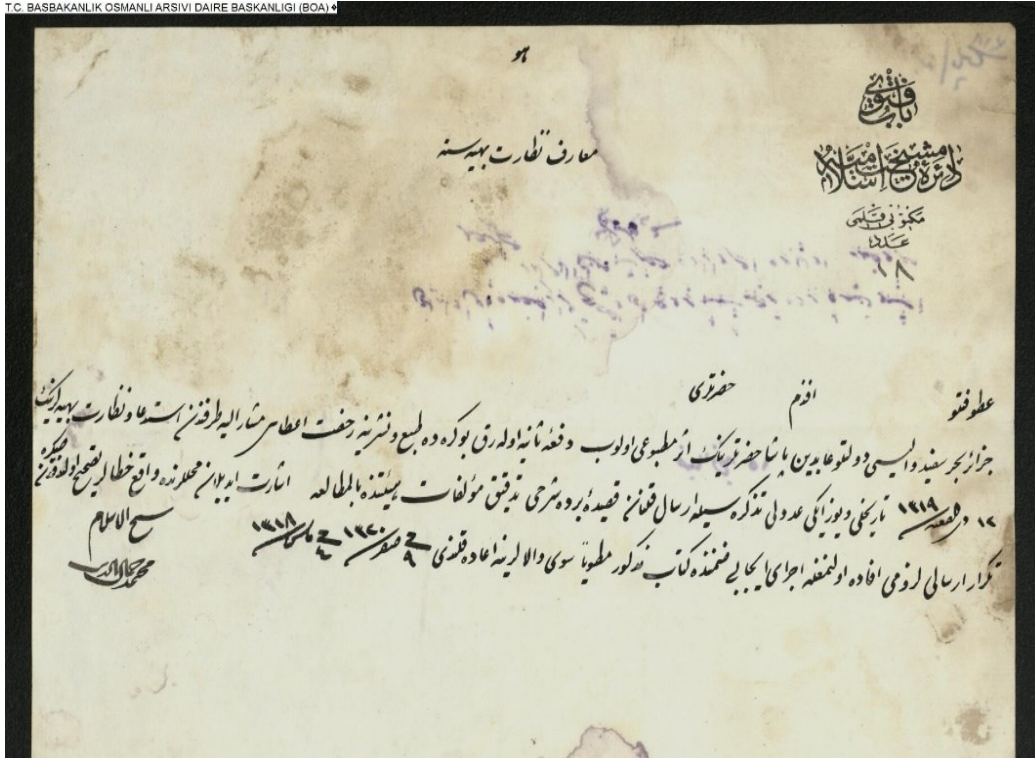 T.C. BASBAKANLIK OSMANLI ARSIVI DAIRE BASKANLIGI (BOA)
هو
باب فتوى
دائرهٔ مشيخت اسلاميه
مكتوبى قلمى
عدد
١٨
معارف نظارت بهيه سنه
عطوفتلو افندم حضرتلرى
جزائر بحر سفيد واليسى دولتلو عابدين پاشا حضرتلرينك اثر مطبوعى اولوب دفعهٔ ثانيه اوله رق بوكره ده طبع و نشرينه رخصت اعطاسى مشار اليه طرفندن استدعا و نظارت بهيه لرينك
١٢ ذى القعده ١٣١٩ تاريخلى ويوز ايكى عددلى تذكره سيله ارسال قلنان قصيدهٔ برده شرحى تدقيق مؤلفات هيئتنده بالمطالعه اشارت ايديلان محللرنده واقع خطالر تصحيح اولندقدن صكره
تكرار ارسالى لزومى افاده اولنمغله اجراى ايجابى ضمننده كتاب مذكور مطوياً سوى والالرينه اعاده قلندى فى ٩ صفر ١٣٢٠ فى ٤ مايس ١٣١٨
شيخ الاسلام
محمد جمال الدين